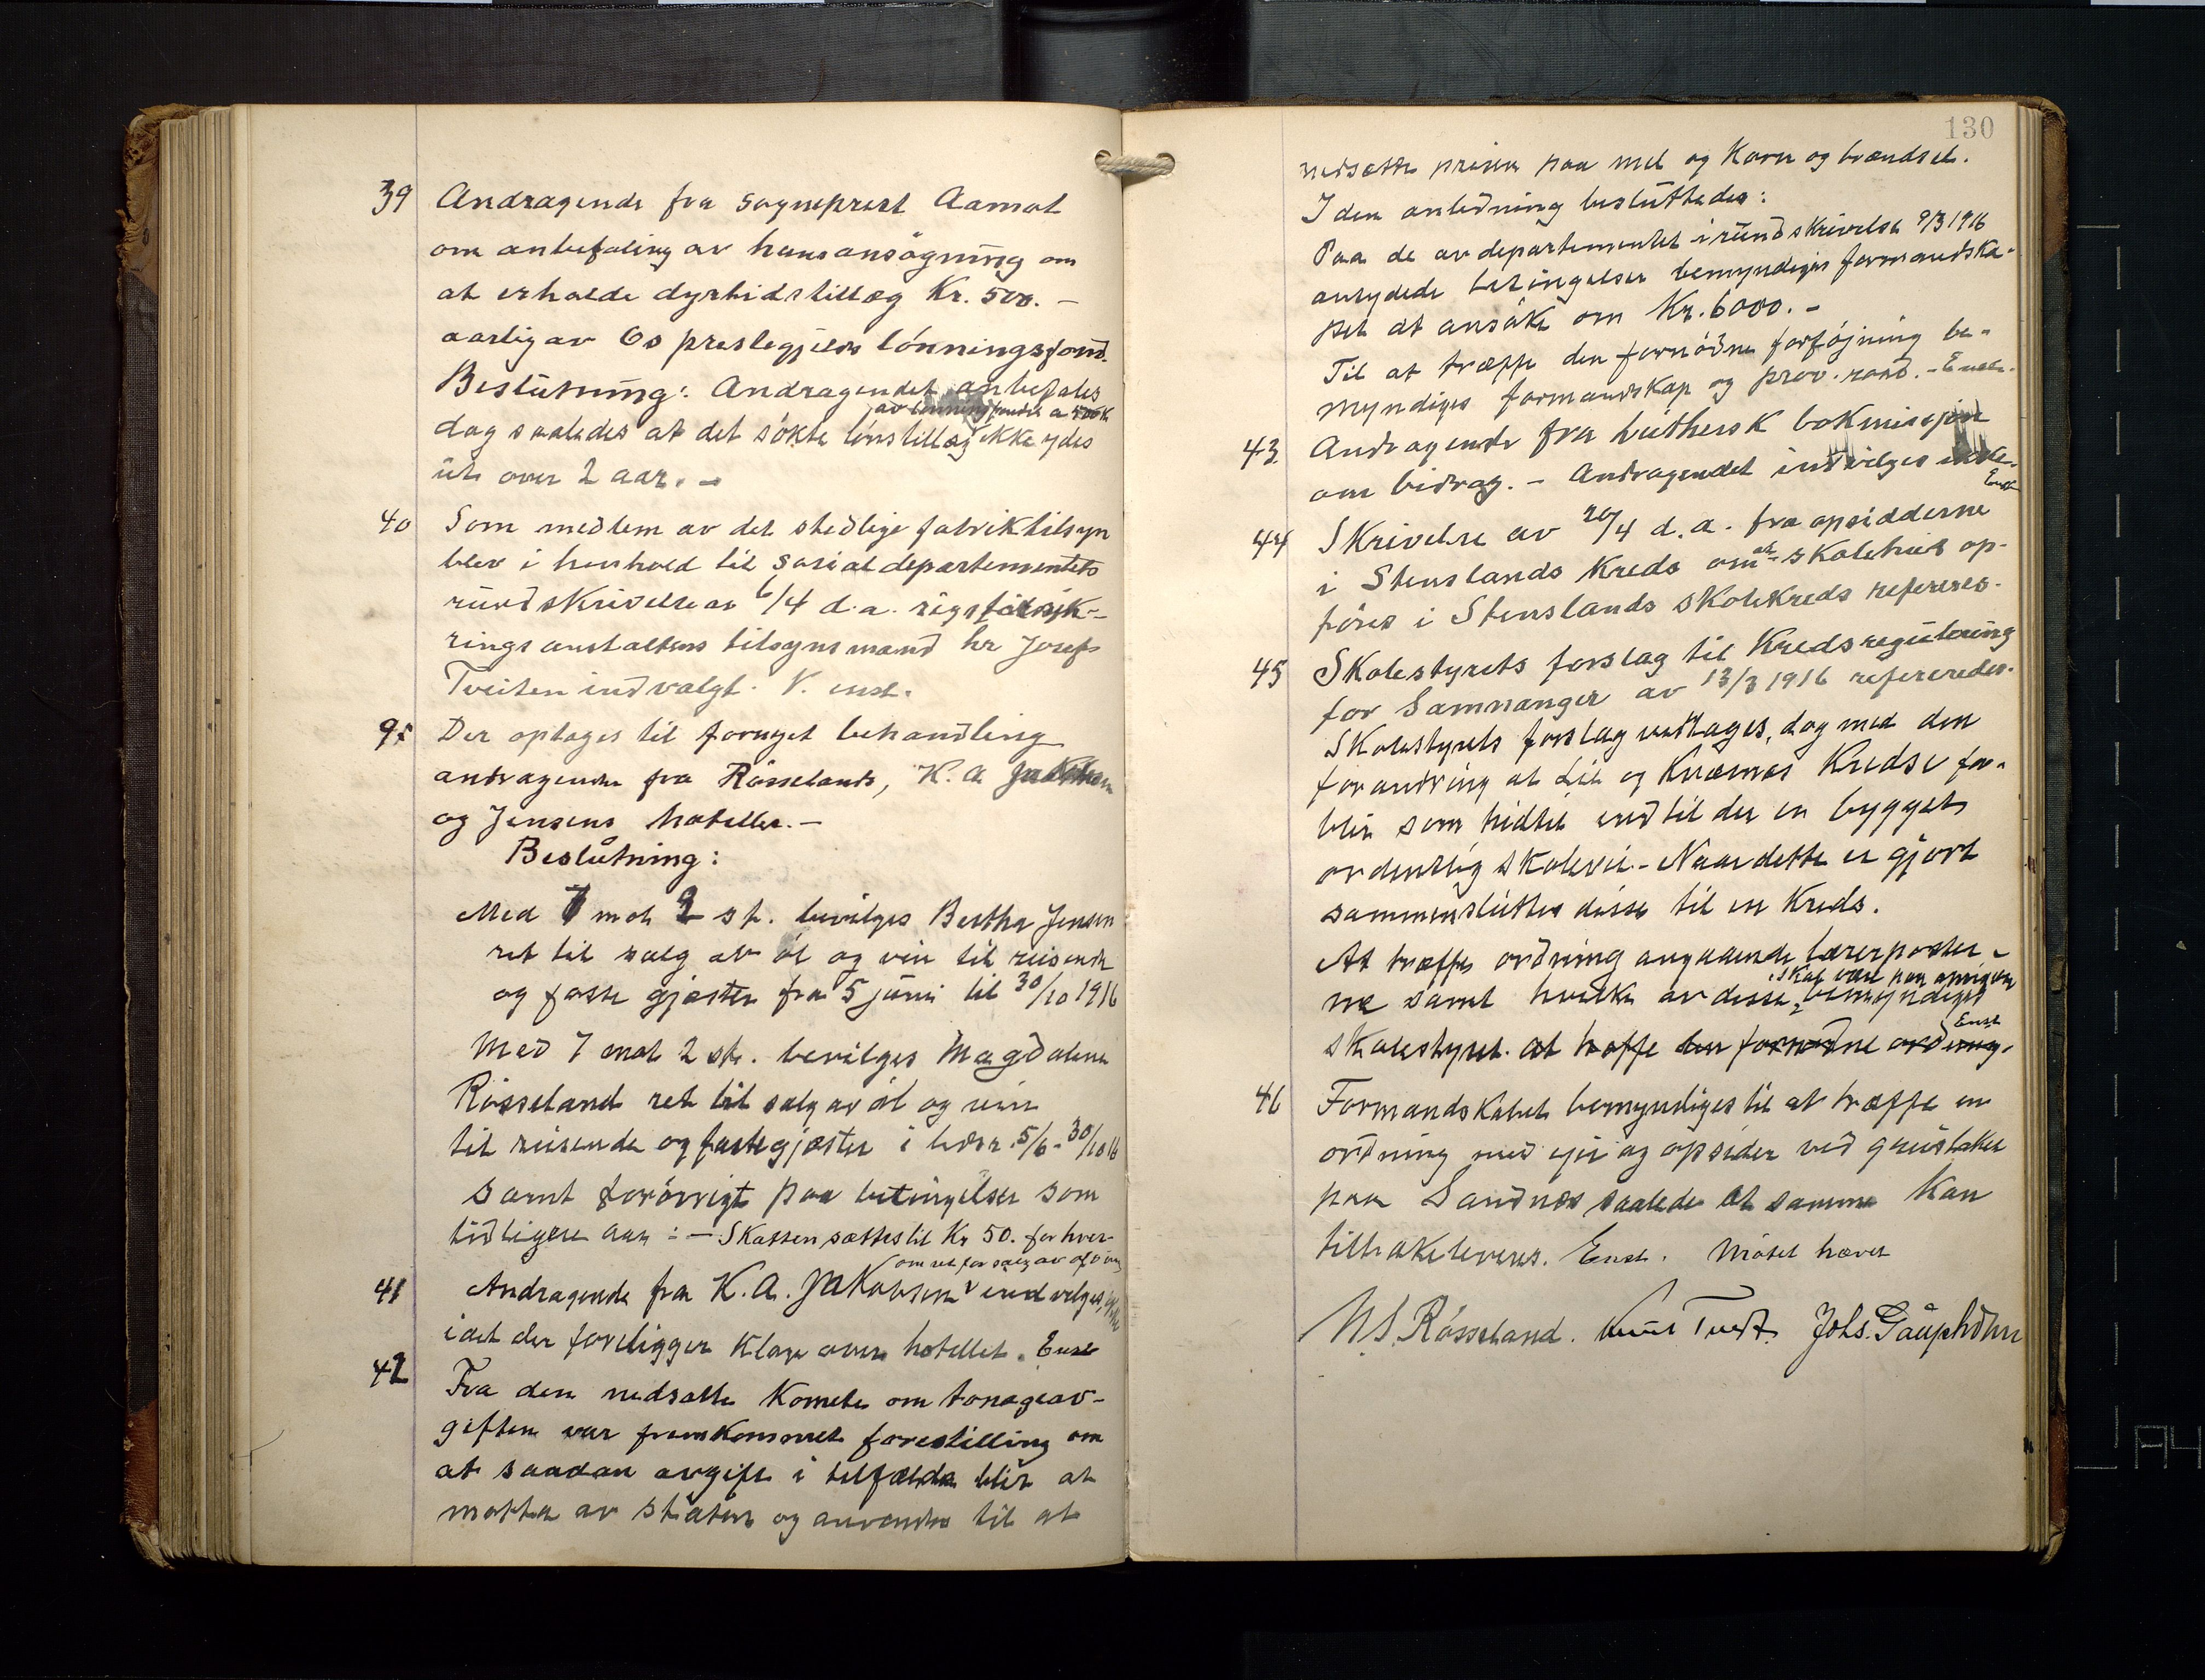 39 Andragende fra sogneprest Aamot
om anbefaling av hans ansögning om
at erholde dyrtidstillæg Kr. 500.-
aarlig av Os prestegjelds lönningsfond.
Beslutning: Andragendet anbefales
av lönningsfondet a 500 K
dog saaledes at det sökte lönstillæg ikke ydes
ut over 2 aar. -
40 Som medlem av det stedlige fabriktilsyn
blev i henhold til Sosialdepartementets
rundskrivelse av 6/4 d.a. rigsforsik-
ringsanstaltens tilsynsmand hr Josef
Tveiten indvalgt. V. enst.
95 Der optages til fornyet behandling
andragende fra Rösselands, K. A Jakobsen
og Jensens hoteller.-
Beslutning:
Med 7 mot 2 st. bevilges Bertha Jensen
ret til salg av öl og vin til reisende
og faste gjester fra 5 juni til 30/10 1916
Med 7 mot 2 st. bevilges Magdalena
Rösseland ret til salg av öl og vin
til reisende og faste gjæster i tidsr. 5/6 - 30/10 16
samt forövrigt paa betingelser som
tidligere aar :- Skatten sættes til Kr 50. for hver-
om ret for salg av öl o vin
41 Andragende fra K. A. Jakobsen indvilges ikke
idet der foreligger klage over hotellet. Enst
42 Fra den nedsatte Komite om tonageav-
giften var fremkommet forestilling om
at saadan avgift i tilfælde blir at
motta av staten og anvendes til at
130
nedsætte prisen paa mel og Korn og brændsel.
I den anledning besluttedes:
Paa de av departementet i rundskrivelse 9/3 1916
antydede betingelser bemyndiges formandska-
pet at ansöke om Kr. 6000.-
Til at træffe den fornödne forföjning be-
myndiges formandskap og prov. raad. - Enst.
43. Andragende fra luthersk bokmisjon
om bidrag. - Andragendet indvilges ikke.
Enst
44 Skrivelse av 20/4 d.a. fra opsidderne
i Stenslands Kreds om at skolehus op-
föres i Stenslands skolekreds refereres.
45 Skolestyrets forslag til Kredsregulering
for Samnanger av 13/3 1916 refereredes.
Skolestyrets forslag vedtages, dog med den
forandring at Lid og Kvernes Kredse for-
blir som hidtil indtil der er bygget
ordentlig skolevei.- Naar dette er gjort
sammensluttes disse til en Kreds.
At træffe ordning angaaende lærerposter-
skal være paa
ne samt hvilke av disse bemyndiges
Enst
skolestyret. at træffe den fornödne ordning.
46 Formandskabet bemyndiges til at træffe en
ordning med eier og opsider ved grustaket
paa Sandnes saaledes at samme Kan
tilbakeleveres. Enst. Mötet hævet
N.S. Rösseland. Knut Tvedt Johs. Gauphölm